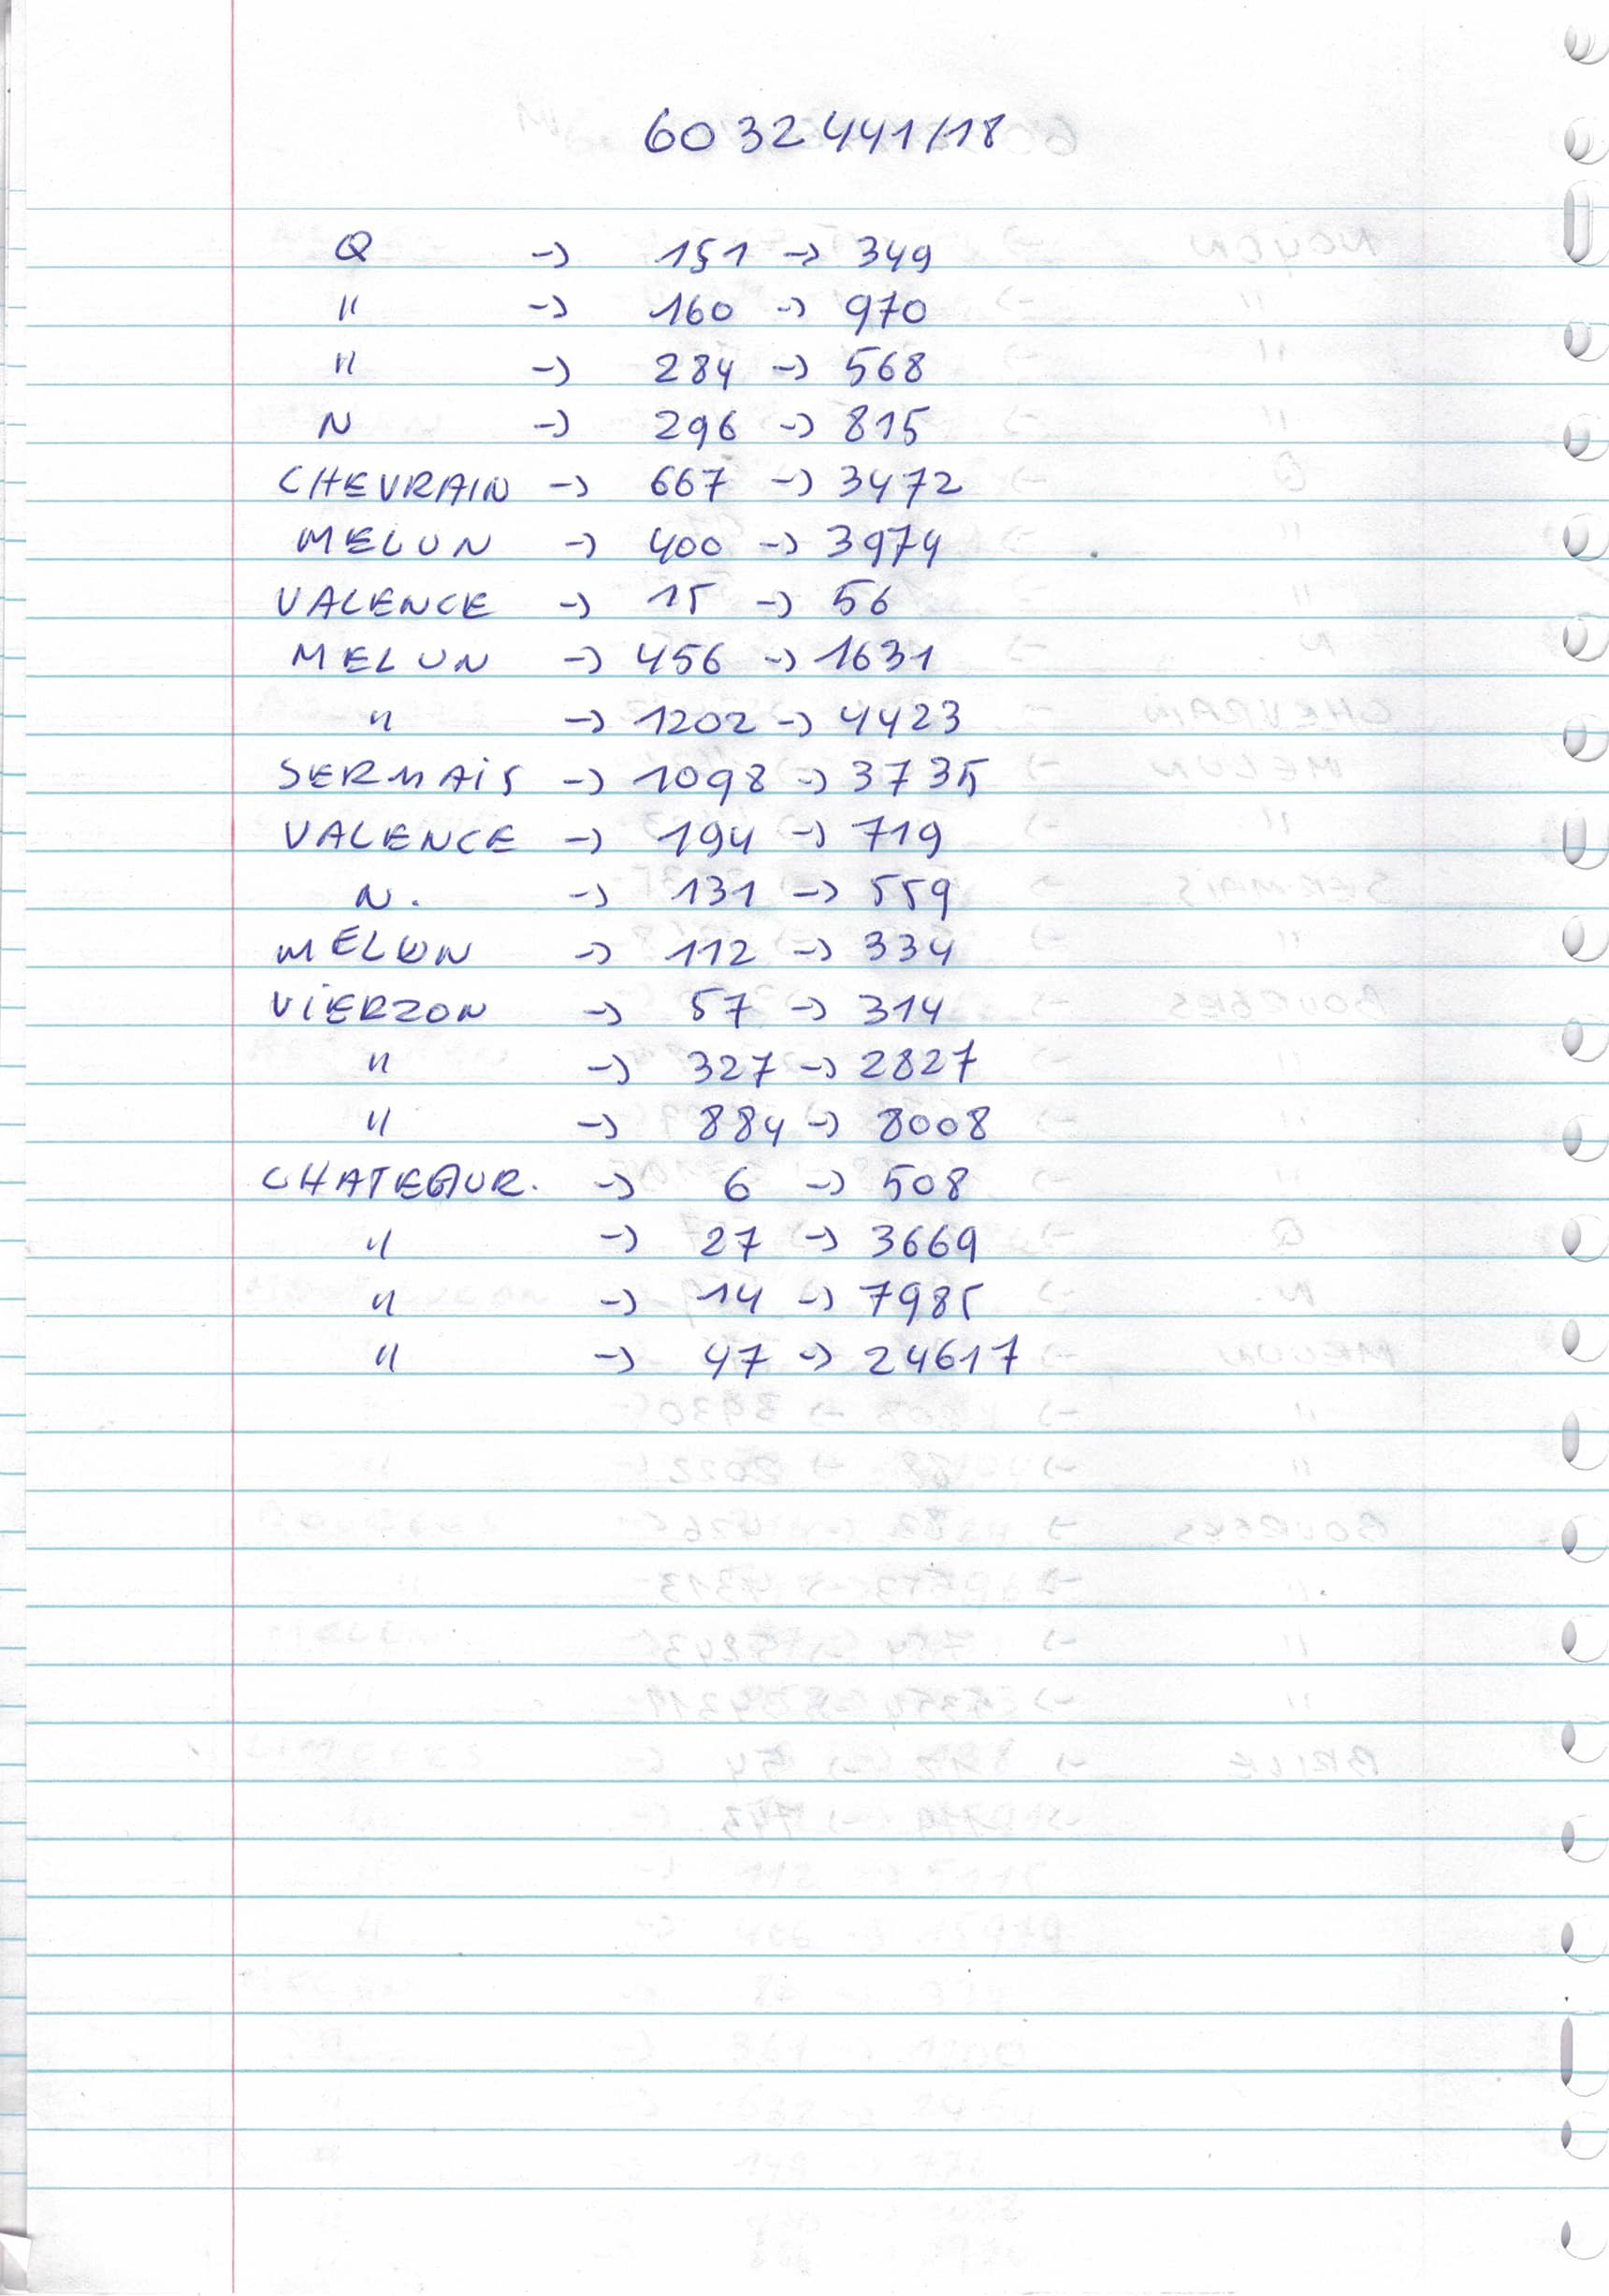 6032441/18
Q -> 151 -> 349
" -> 160 -> 970
" -> 284 -> 568
N -> 296 -> 815
CHEVRAIN -> 667 -> 3472
MELUN -> 400 -> 3974
VALENCE -> 15 -> 56
MELUN -> 456 -> 1631
" -> 1202 -> 4423
SERMAIS -> 1098 -> 3735
VALENCE -> 194 -> 719
N. -> 131 -> 559
MELUN -> 112 -> 334
VIERZON -> 57 -> 314
" -> 327 -> 2827
" -> 884 -> 8008
CHATEAUR. -> 6 -> 508
" -> 27 -> 3669
" -> 14 -> 7985
" -> 47 -> 24617